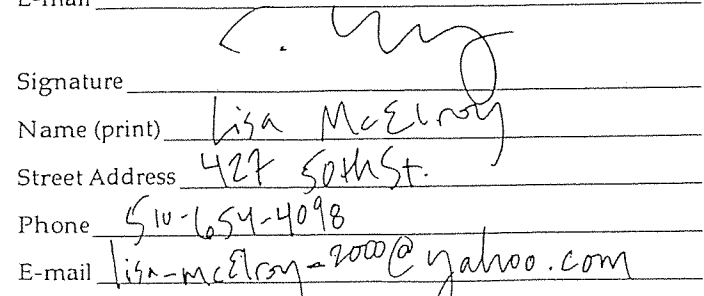 E-mail
Signature
Name (print) Lisa McElroy
Street Address 427 50th St.
Phone 510-654-4098
E-mail lisa-mcElroy-2000@yahoo.com